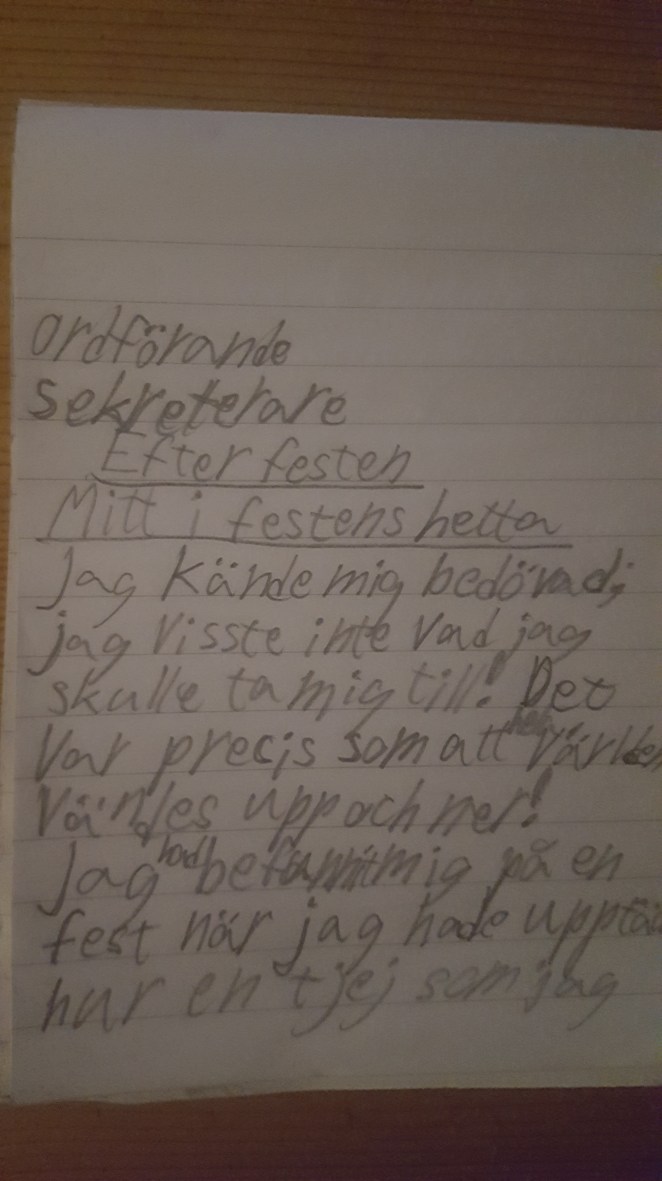 ordförande
sekreterare
Efter festen
Mitt i festens hetta
Jag kände mig bedövad;
jag visste inte vad jag
skulle ta mig till! Det
var precis som att hela världen
vändes upp och ner!
Jag had befunnit mig på en
fest när jag hade
hur en tjej som jag